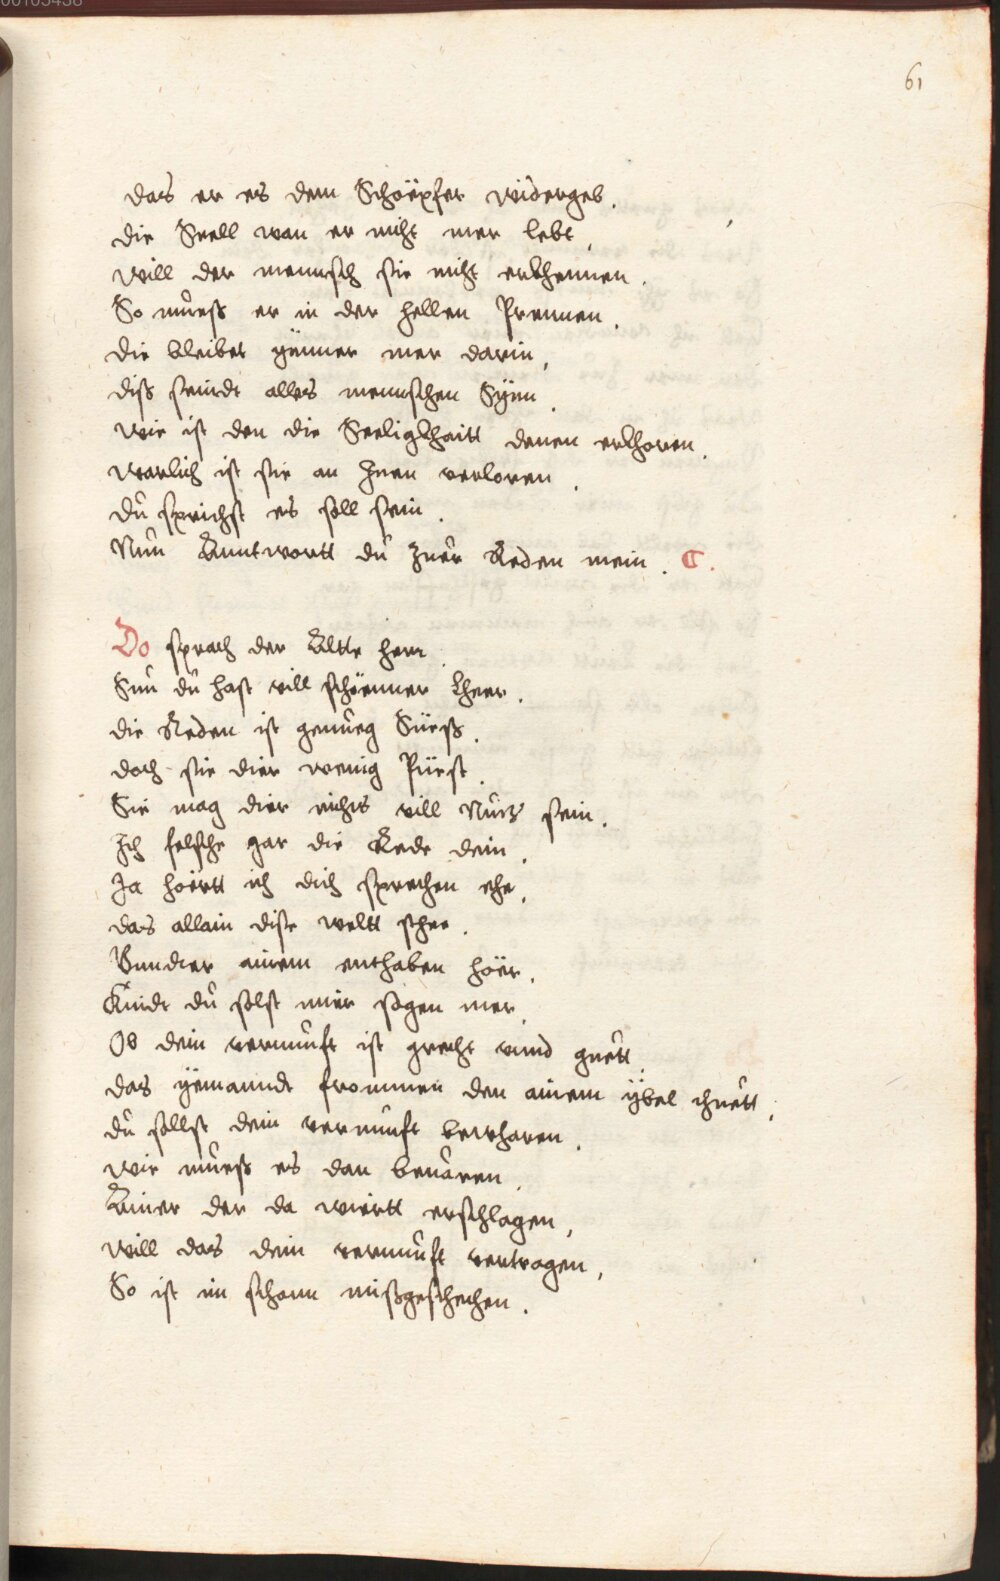 00103438
61
das er es dem Schöpfer widergeb.
die Seell wan er nicht mer lebt,
will der mennsch sie nicht erkhennen.
So muess er in der hellen Prennen.
die bleibet ÿmmer mer darin,
diss seindt alles mennschen Sÿnn.
wie ist den die Seeligkhaitt denen erkhoren.
warlich ist sie an Inen verloren.
du sprichst es soll sein.
Nun Anntwortt du zuer Reden mein. C.
Do sprach der Altte herr.
Sun du hast vill schöenner Lheer.
die Reden ist genueg Süess.
doch sie dier wenig Püest.
Sie mag dier nichts vill Nutz sein.
Ich felsche gar die Rede dein.
Ja hörtt ich dich sprechen ehe,
das allain dise weltt stehe.
Vundter ainem enthaben hör.
Kindt du solst mier sagen mer.
Ob dein vernunft ist gerecht unnd guett.
das ÿemanndt frommen den ainem ÿbel thuett.
du sollst dein vernunft bewharen.
wie muess es dan bewaren.
Ainer der da wiertt erschlagen,
will das dein vernunft vertragen,
So ist im schonn missgeschechen.